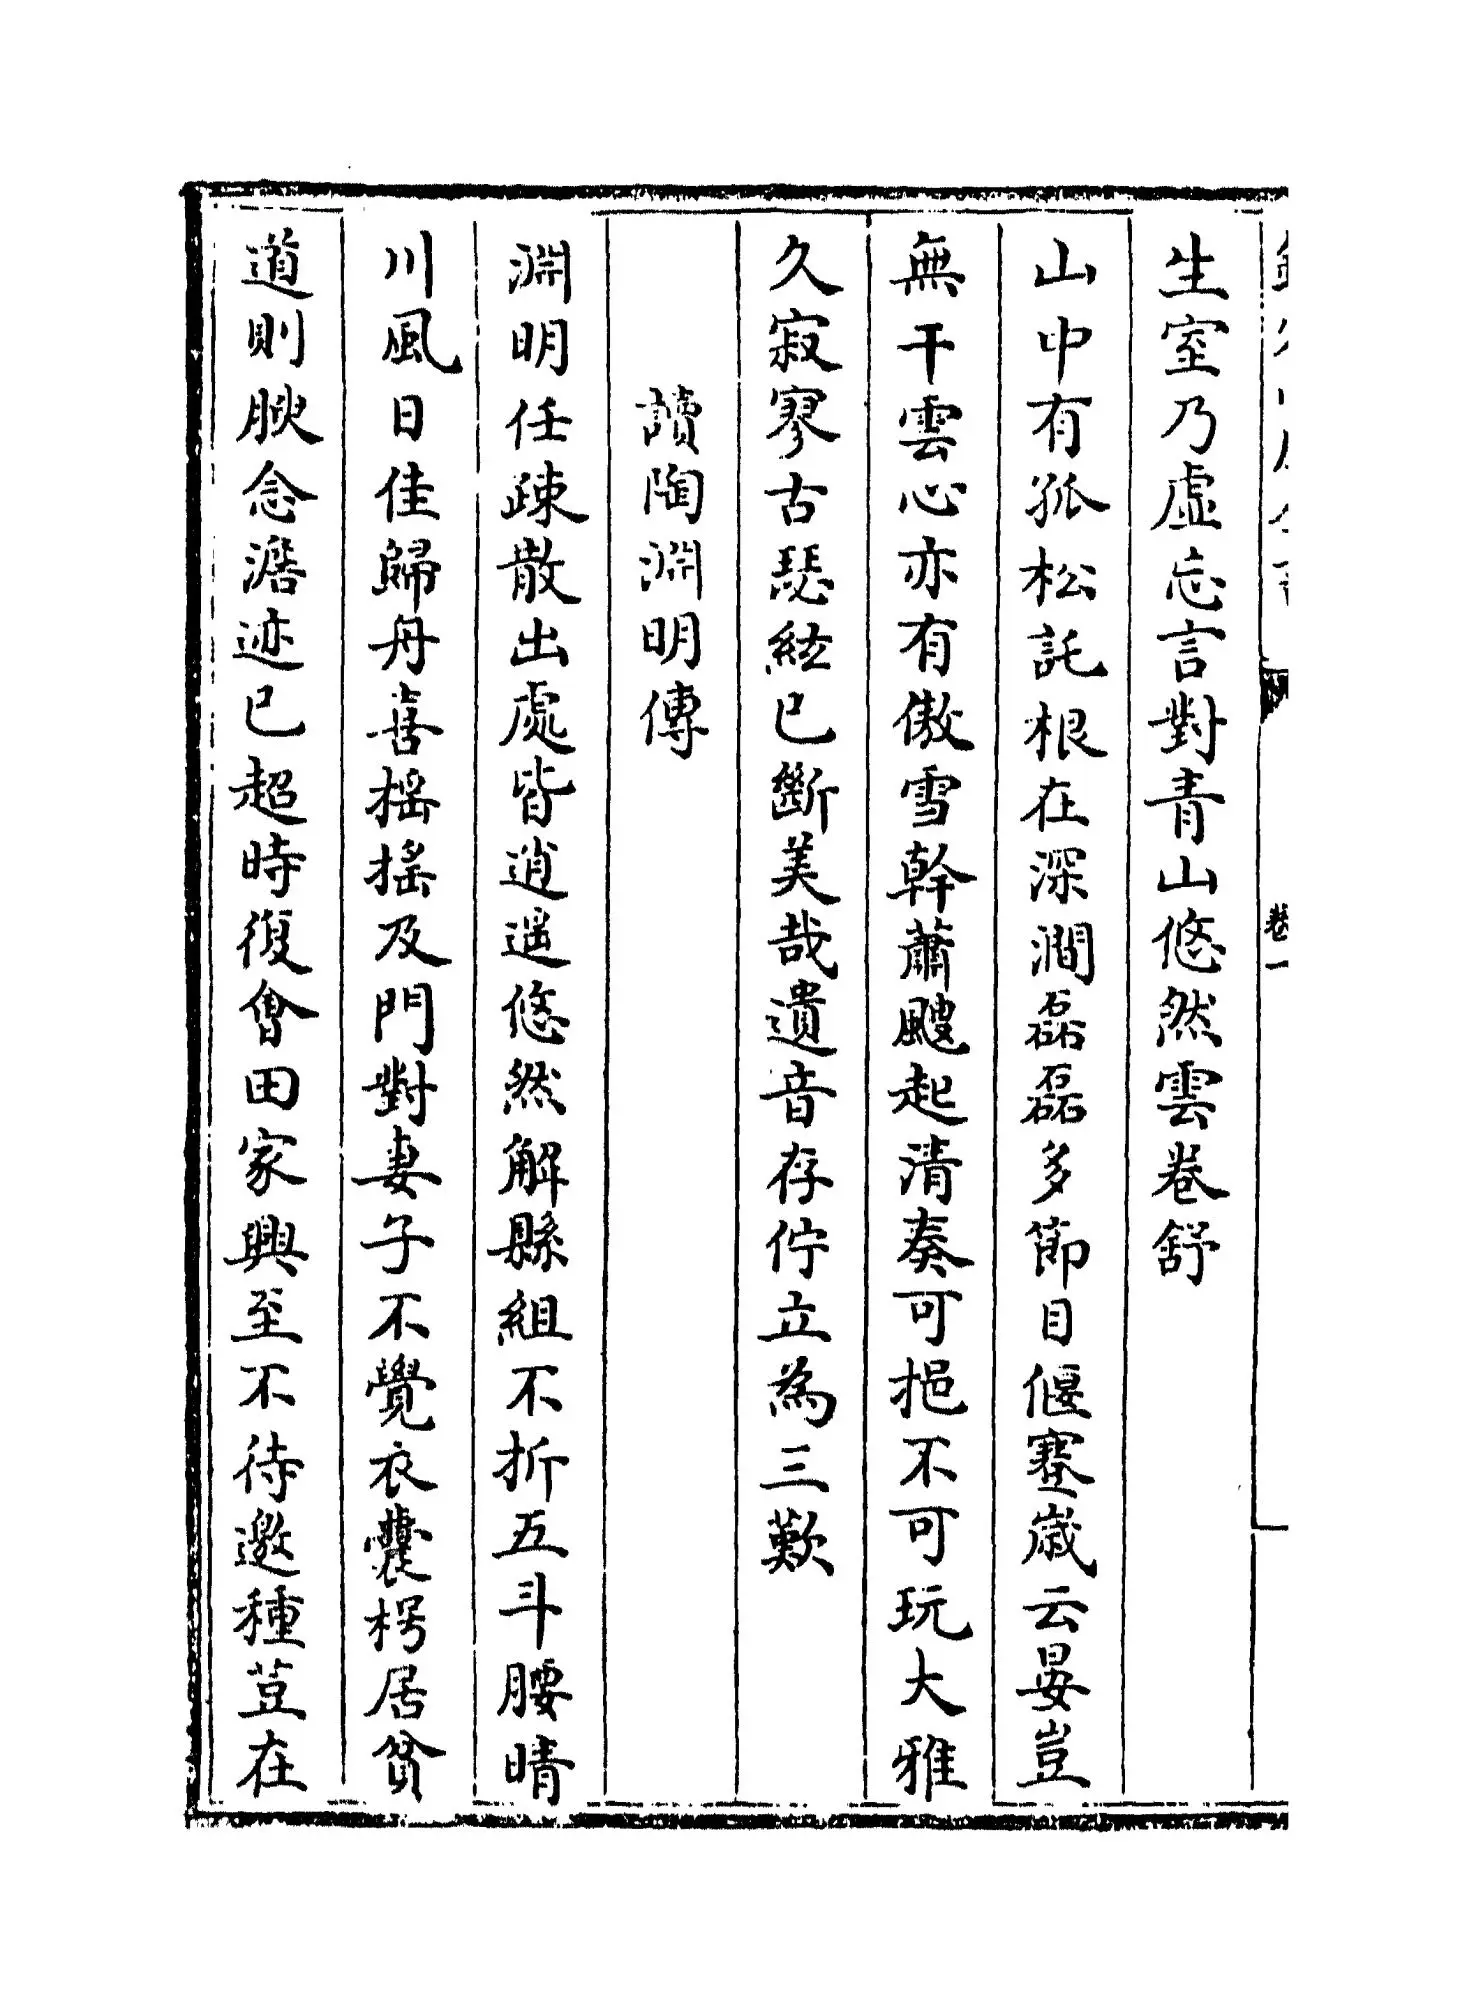 卷一
生室乃虛忘言對青山悠然雲卷舒
山中有孤松託根在深澗磊磊多節目偃蹇歲云晏豈
無干雲心亦有傲雪幹蕭颼起清奏可挹不可玩大雅
久寂寥古瑟絃已斷美哉遺音存佇立為三歎
讀陶淵明傳
淵明任疎散出處皆逍遥悠然解縣組不折五斗腰晴
川風日佳歸舟喜搖搖及門對妻子不覺衣囊枵居貧
道則腴念澹迹已超時復會田家興至不待邀種荳在